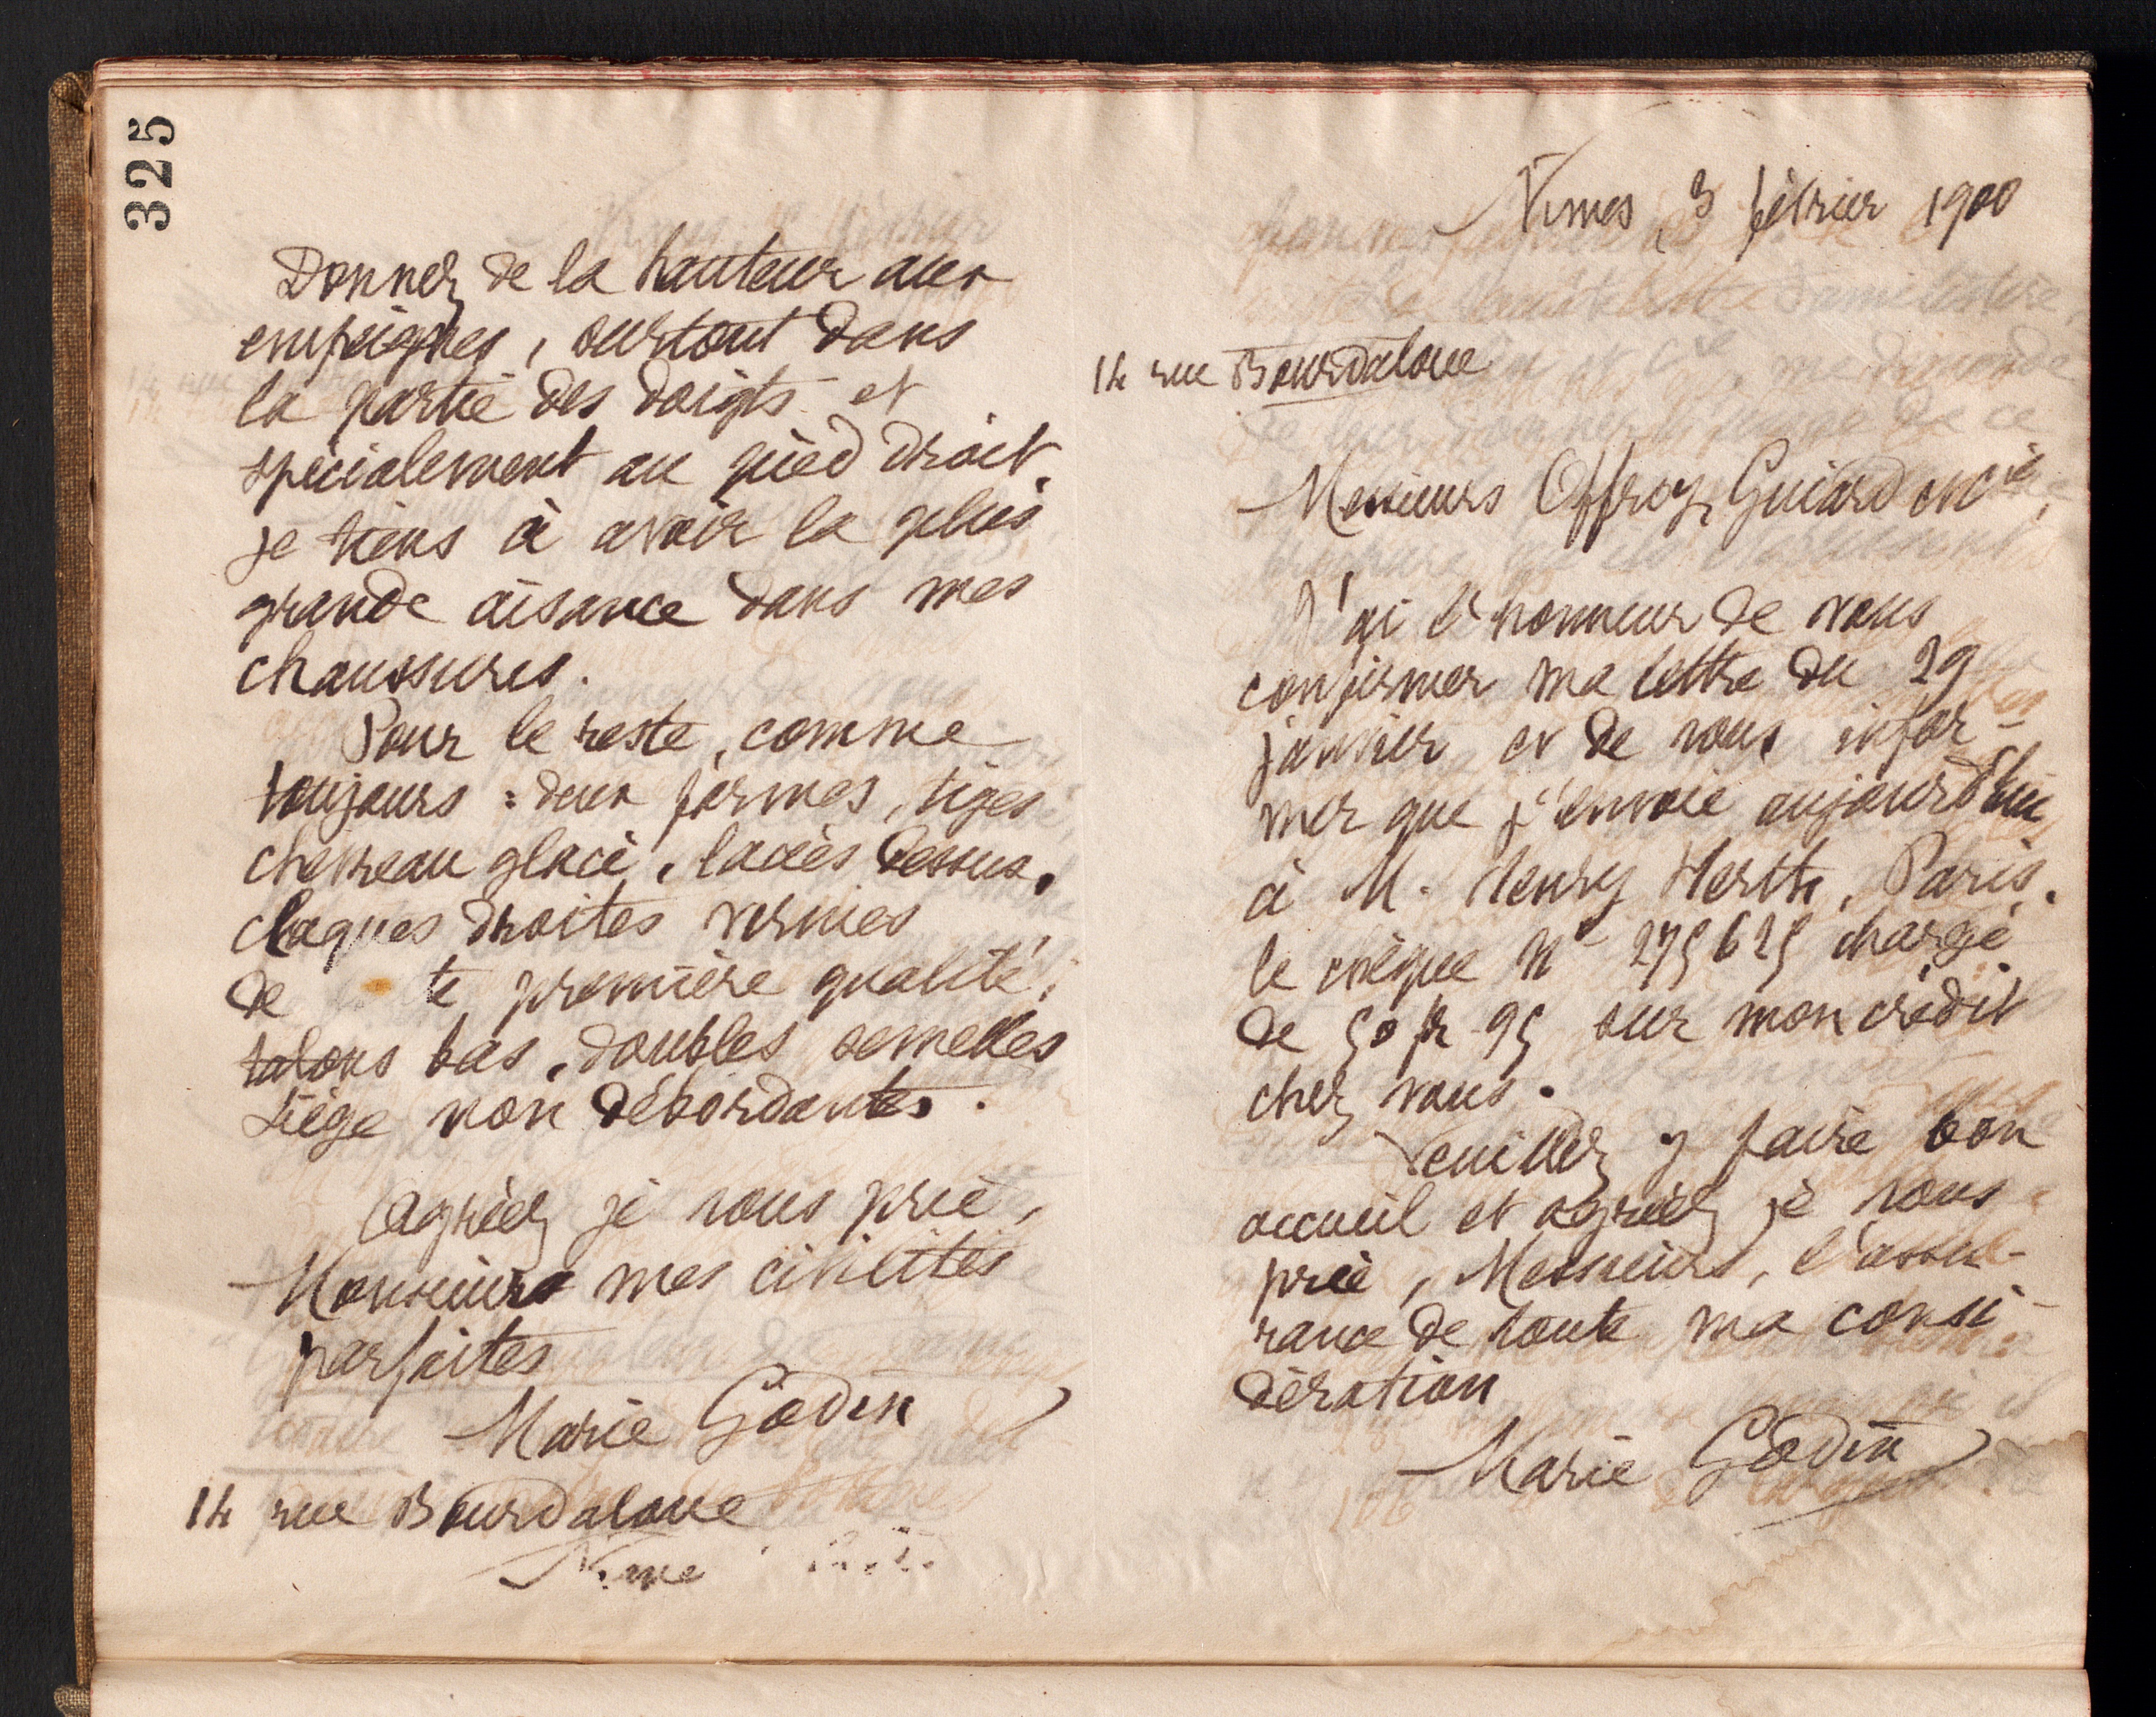 325
Donnez de la hauteur aux
empeignes, surtout dans
la partie des doigts et
spécialement au pied droit.
je tiens à avoir la plus
grande aisance dans mes
chaussures.
Pour le reste, comme
toujours : deux formes, tiges
chevreau glacé, lacées dessus,
claques droites vernies
de te première qualité,
talons bas, doubles semelles
liège non débordantes.
Agréez je vous prie,
Monsieur mes civilités
parfaites
Marie Godin
14 rue Bourdaloue
Nîmes 3 février 1900
14 rue Bourdaloue
Messieurs Offroy, Guiard & Cie,
J'ai l'honneur de vous
confirmer ma lettre du 29
janvier et de vous infor-
mer que j'envoie aujourd'hui
à M. Henry Herth, Paris.
le chèque N° 275625 chargé
de 50 fr 95 sur mon crédit
chez vous.
Veuillez y faire bon
accueil et agréez je vous
prie, Messieurs, l'assu-
rance de toute ma consi-
dération
Marie Godin